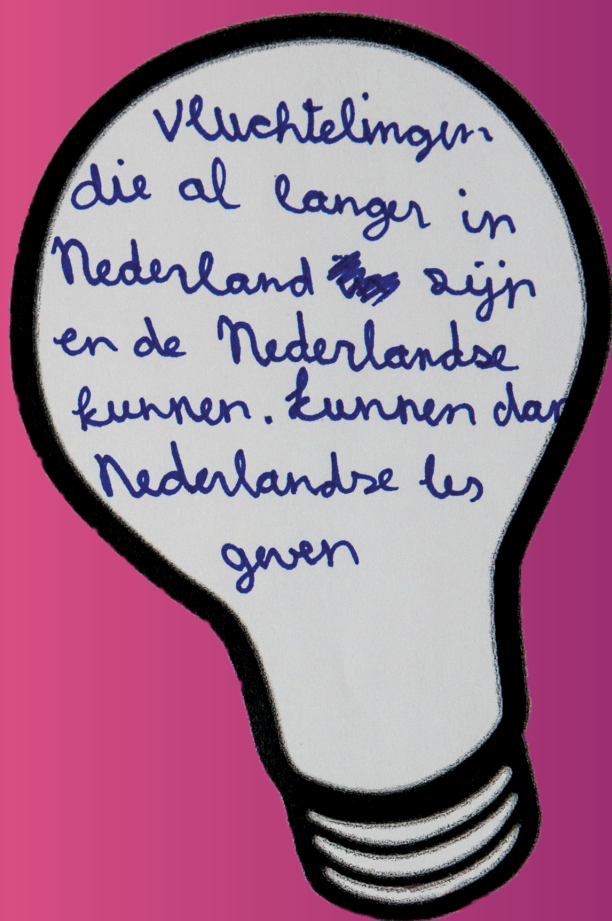 Vluchtelingen
die al langer in
Nederland zijn
en de Nederlandse
kunnen. kunnen dan
Nederlandse les
geven